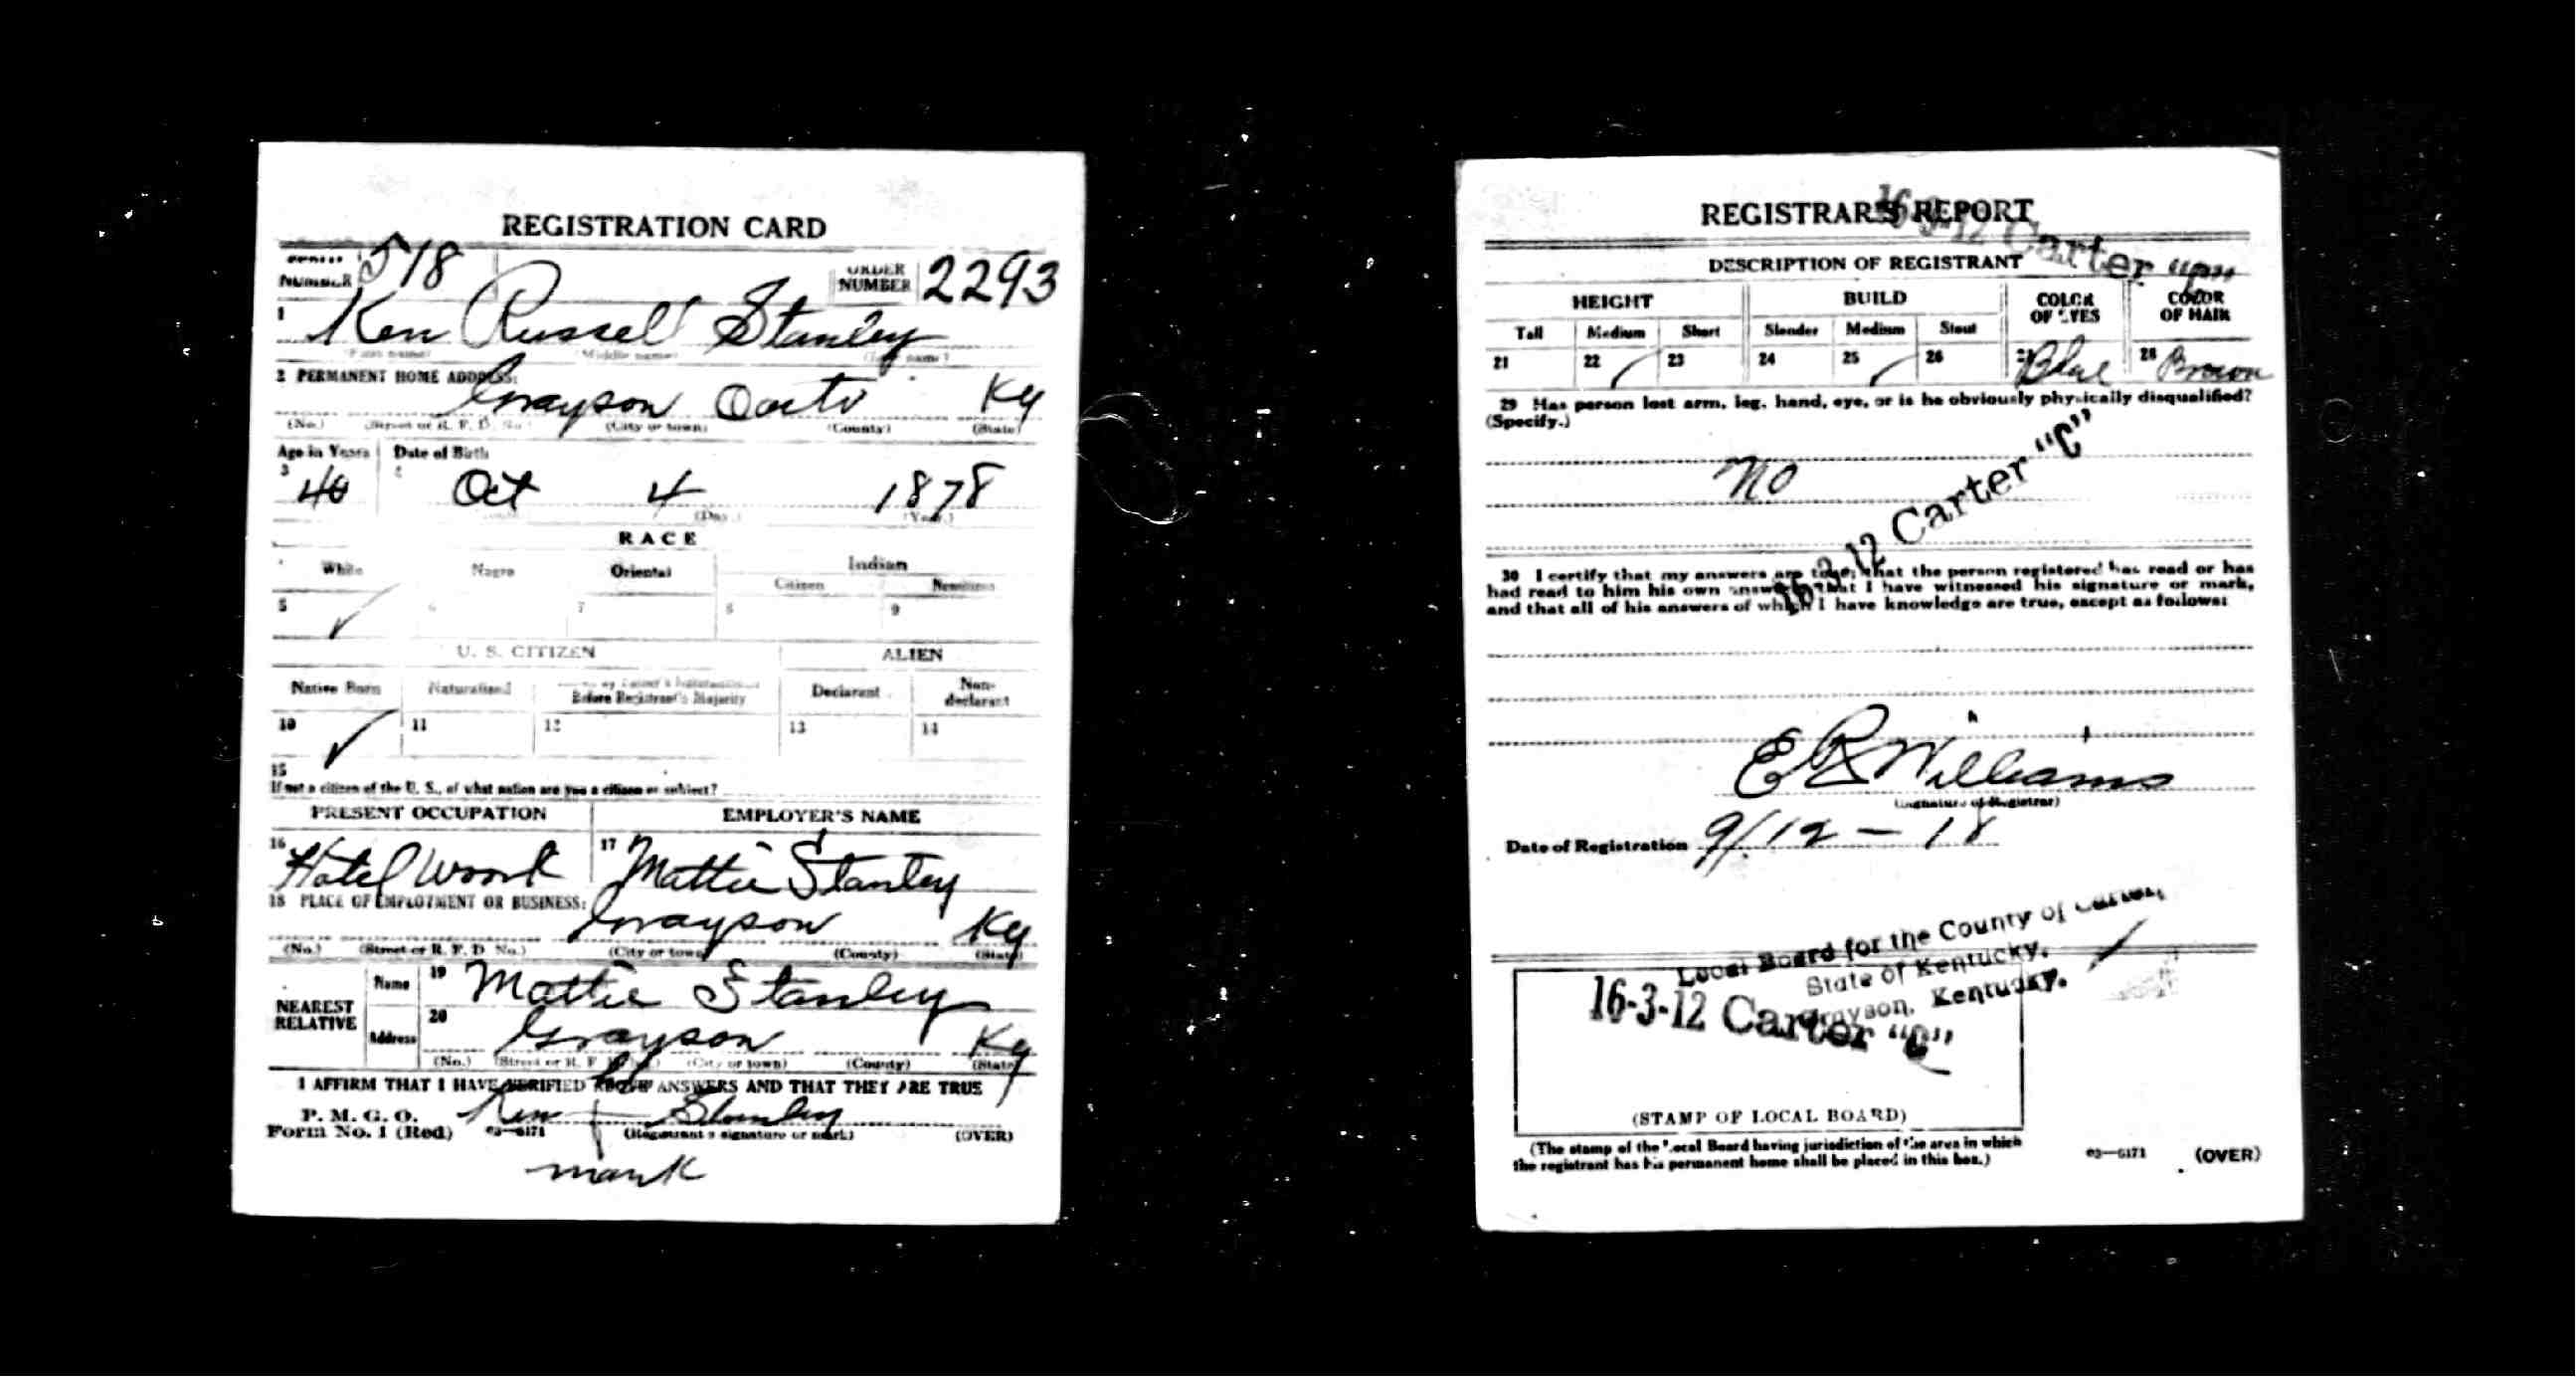 REGISTRATION CARD
NUMBER 518 ORDER NUMBER 2293
1 Ken Russel Stanley
(First name) (Middle name) (Last name)
2 PERMANENT HOME ADDRESS:
Grayson Ky
(No.) (Street or R. F. D. No.) (City or town) (County) (State)
Age in Years Date of Birth
3 40 4 Oct 4 1878
(Day) (Year)
RACE
White Negro Oriental Indian
Citizen
5 ✓ 6 7 8 9
U. S. CITIZEN ALIEN
Native Born Naturalized Before Registrant's Majority Declarant Non-declarant
10 ✓ 11 12 13 14
15
If not a citizen of the U. S., of what nation are you a citizen or subject?
PRESENT OCCUPATION EMPLOYER'S NAME
16 Hotel Work 17 Mattie Stanley
18 PLACE OF EMPLOYMENT OR BUSINESS:
Grayson Ky
(No.) (Street or R. F. D. No.) (City or town) (County) (State)
NEAREST RELATIVE Name 19 Mattie Stanley
Address 20 Grayson Ky
(No.) (Street or R. F. D. No.) (City or town) (County) (State)
I AFFIRM THAT I HAVE VERIFIED ABOVE ANSWERS AND THAT THEY ARE TRUE
P. M. G. O.
Form No. 1 (Red) 03—6171 Ken Stanley
(Registrant's signature or mark) (OVER)
mark
REGISTRAR'S REPORT
16-3-12 Carter
DESCRIPTION OF REGISTRANT
HEIGHT BUILD COLOR OF EYES COLOR OF HAIR
Tall Medium Short Slender Medium Stout
21 22 ✓ 23 24 25 ✓ 26 27 Blue 28 Brown
29 Has person lost arm, leg, hand, eye, or is he obviously physically disqualified?
(Specify.)
No
16-3-12 Carter "C"
30 I certify that my answers are true; that the person registered has read or has
had read to him his own answers; that I have witnessed his signature or mark,
and that all of his answers of which I have knowledge are true, except as follows:
E R Williams
(Signature of Registrar)
Date of Registration 9/12-18
Local Board for the County of Carter,
State of Kentucky.
Grayson, Kentucky.
16-3-12 Carter "C"
(STAMP OF LOCAL BOARD)
(The stamp of the Local Board having jurisdiction of the area in which
the registrant has his permanent home shall be placed in this box.)
03—6171 (OVER)